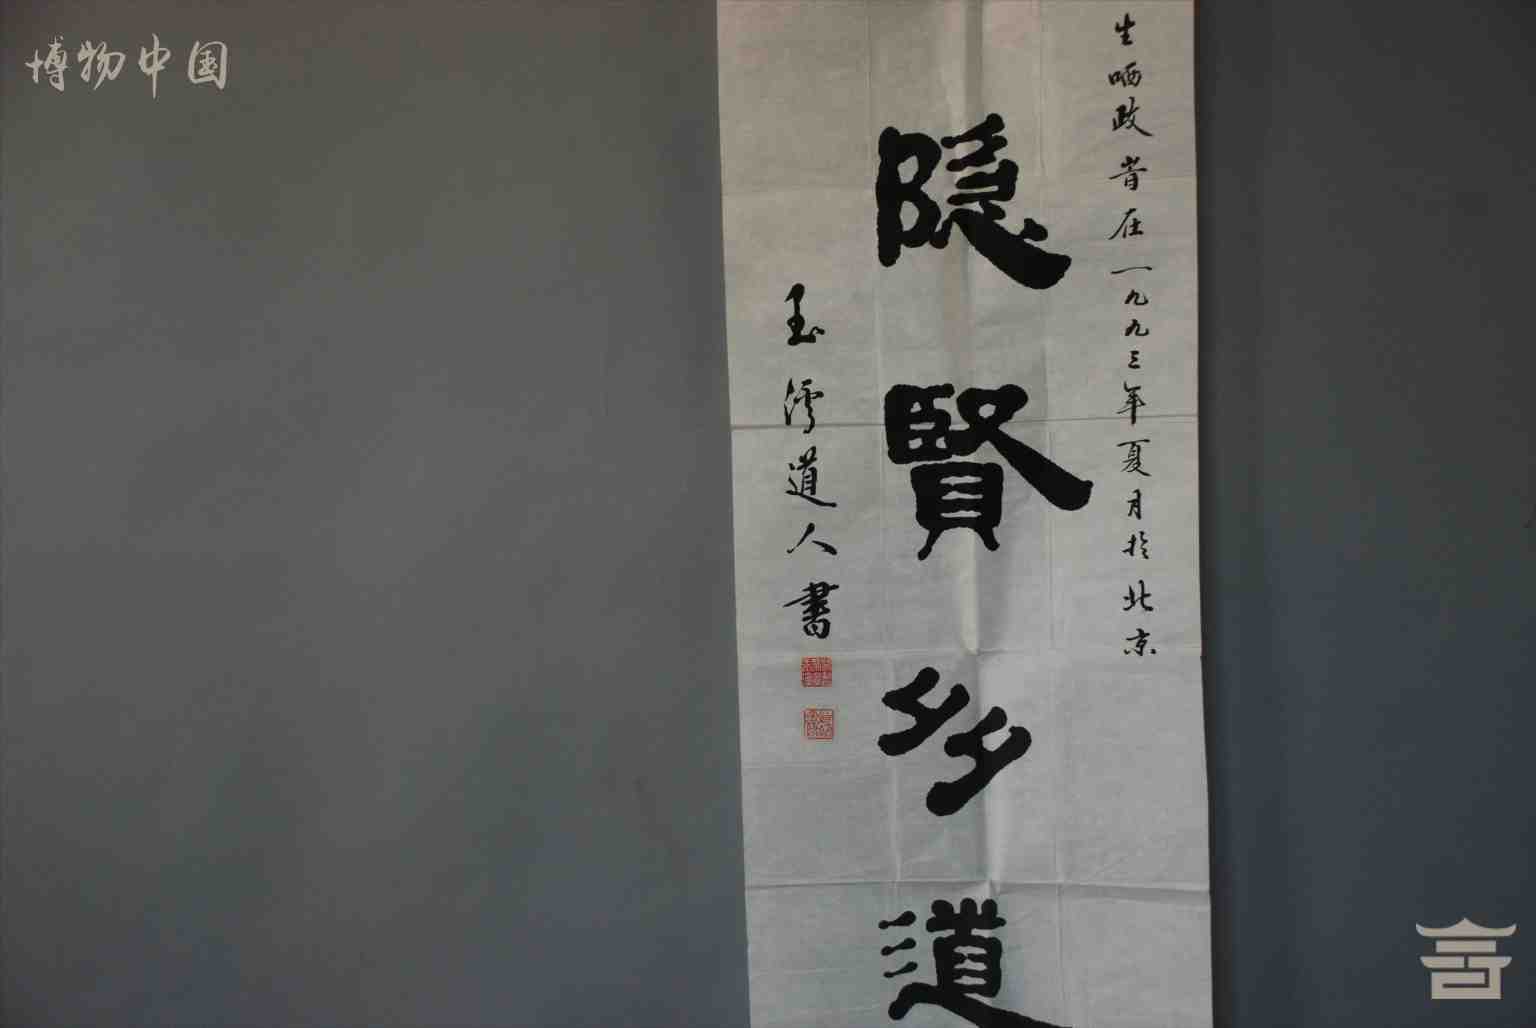 博物中国
生哂政 昔在一九九三年夏月于北京
隐賢多道
玉澪道人書